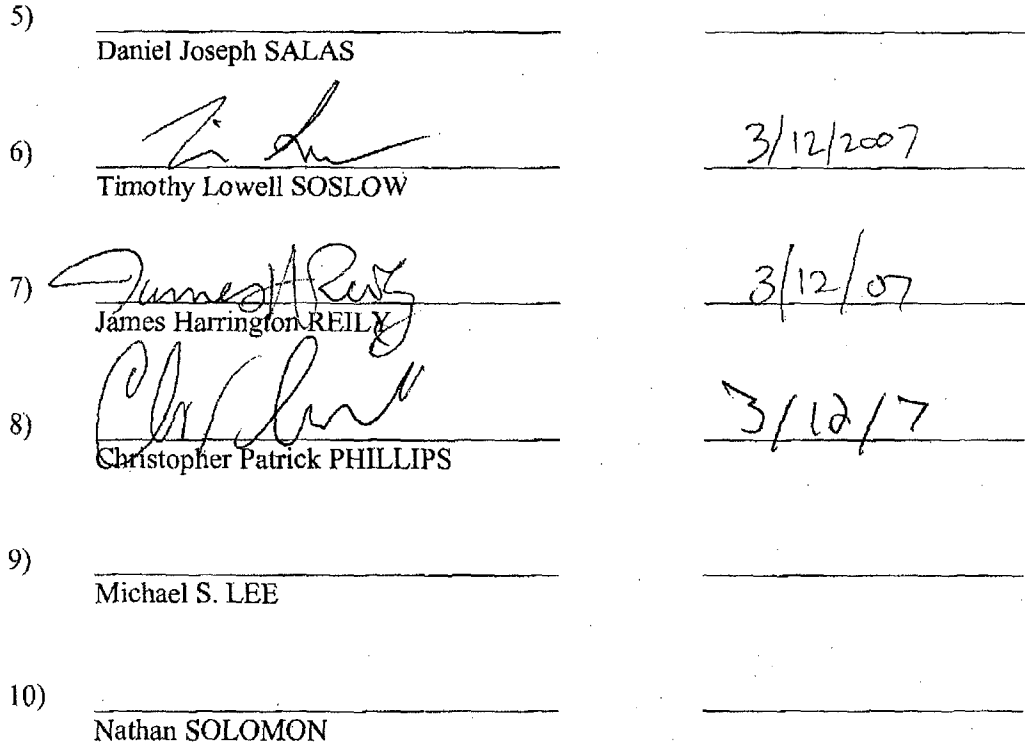 5)
Daniel Joseph SALAS
6) 3/12/2007
Timothy Lowell SOSLOW
7) James H Reily 3/12/07
James Harrington REILY
8) 3/12/7
Christopher Patrick PHILLIPS
9)
Michael S. LEE
10)
Nathan SOLOMON